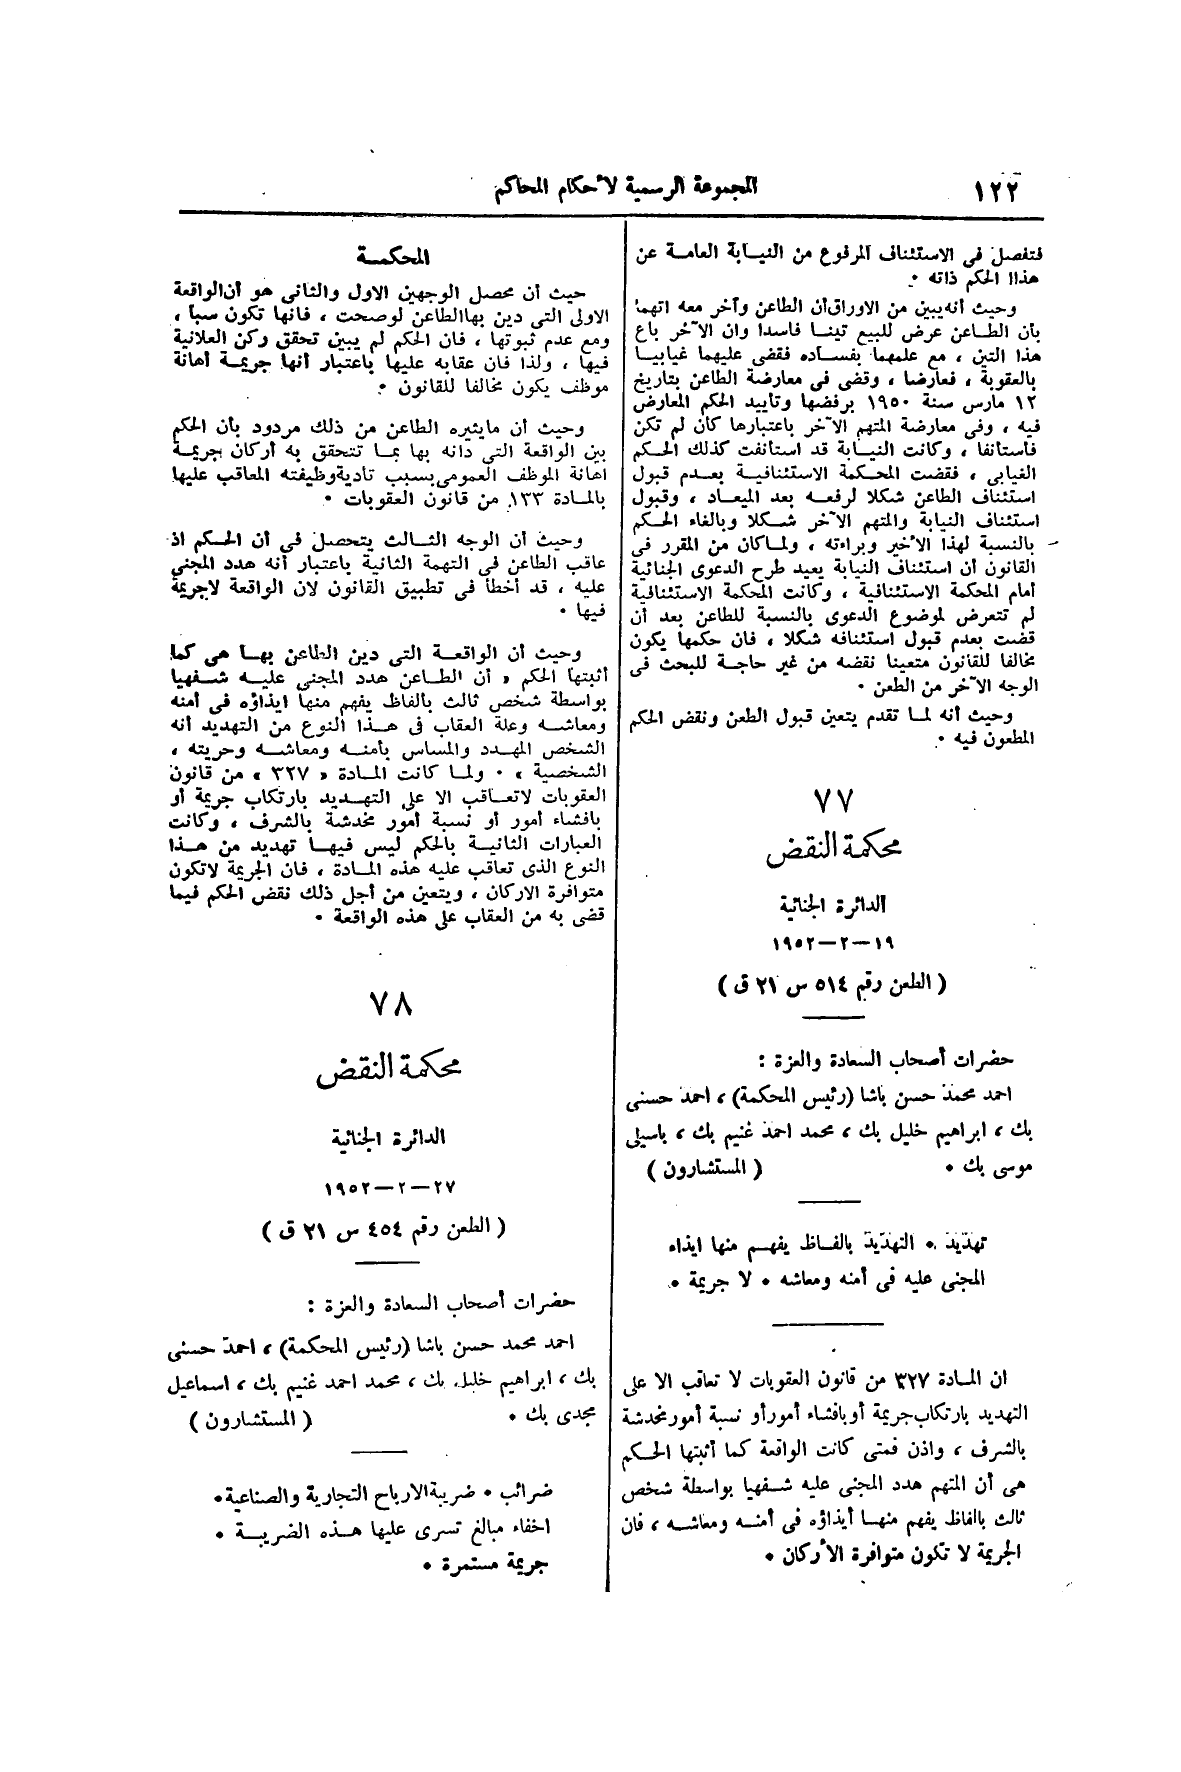 ١٢٢
المجموعة الرسمية لأحكام المحاكم
فتفصل فى الاستئناف المرفوع من النيابة العامة عن
هذا الحكم ذاته ٠
وحيث أنه يبين من الاوراق أن الطاعن وآخر معه اتهما
بأن الطاعن عرض للبيع تينا فاسدا وان الآخر باع
هذا التين ، مع علمهما بفساده فقضى عليهما غيابيا
بالعقوبة ، فعارضا ، وقضى فى معارضة الطاعن بتاريخ
١٢ مارس سنة ١٩٥٠ برفضها وتأييد الحكم المعارض
فيه ، وفى معارضة المتهم الآخر باعتبارها كان لم تكن
فاستأنفا ، وكانت النيابة قد استأنفت كذلك الحكم
الغيابى ، فقضت المحكمة الاستئنافية بعدم قبول
استئناف الطاعن شكلا لرفعه بعد الميعاد ، وقبول
استئناف النيابة والمتهم الآخر شكلا وبالغاء الحكم
بالنسبة لهذا الأخير وبراءته ، ولما كان من المقرر فى
القانون أن استئناف النيابة يعيد طرح الدعوى الجنائية
أمام المحكمة الاستئنافية ، وكانت المحكمة الاستئنافية
لم تتعرض لموضوع الدعوى بالنسبة للطاعن بعد أن
قضت بعدم قبول استئنافه شكلا ، فان حكمها يكون
مخالفا للقانون متعينا نقضه من غير حاجة للبحث فى
الوجه الآخر من الطعن ٠
وحيث أنه لما تقدم يتعين قبول الطعن ونقض الحكم
المطعون فيه ٠
٧٧
محكمة النقض
الدائرة الجنائية
١٩ — ٢ — ١٩٥٢
( الطعن رقم ٥١٤ س ٢١ ق )
حضرات أصحاب السعادة والعزة :
احمد محمد حسن باشا (رئيس المحكمة) ، احمد حسنى
بك ، ابراهيم خليل بك ، محمد احمد غنيم بك ، باسيلى
موسى بك ٠ ( المستشارون )
تهديد ٠ التهديد بالفاظ يفهم منها ايذاء
المجنى عليه فى أمنه ومعاشه ٠ لا جريمة ٠
ان المادة ٣٢٧ من قانون العقوبات لا تعاقب الا على
التهديد بارتكاب جريمة أو بافشاء أمور أو نسبة أمور مخدشة
بالشرف ، واذن فمتى كانت الواقعة كما أثبتها الحكم
هى أن المتهم هدد المجنى عليه شفهيا بواسطة شخص
ثالث بالفاظ يفهم منها أيذاؤه فى أمنه ومعاشه ، فان
الجريمة لا تكون متوافرة الأركان ٠
المحكمة
حيث أن محصل الوجهين الاول والثانى هو أن الواقعة
الاولى التى دين بها الطاعن لو صحت ، فانها تكون سبا ،
ومع عدم ثبوتها ، فان الحكم لم يبين تحقق ركن العلانية
فيها ، ولذا فان عقابه عليها باعتبار أنها جريمة أهانة
موظف يكون مخالفا للقانون ٠
وحيث أن مايثيره الطاعن من ذلك مردود بأن الحكم
بين الواقعة التى دانه بها بما تتحقق به أركان جريمة
اهانة الموظف العمومى بسبب تأدية وظيفته المعاقب عليها
بالمادة ١٣٣ من قانون العقوبات ٠
وحيث أن الوجه الثالث يتحصل فى أن الحكم اذ
عاقب الطاعن فى التهمة الثانية باعتبار أنه هدد المجنى
عليه ، قد أخطأ فى تطبيق القانون لان الواقعة لاجريمة
فيها ٠
وحيث أن الواقعة التى دين الطاعن بها هى كما
أثبتها الحكم « أن الطاعن هدد المجنى عليه شفهيا
بواسطة شخص ثالث بألفاظ يفهم منها ايذاؤه فى أمنه
ومعاشه وعلة العقاب فى هذا النوع من التهديد أنه
الشخص المهدد والمساس بأمنه ومعاشه وحريته ،
الشخصية » ٠ ولما كانت المادة « ٣٢٧ » من قانون
العقوبات لاتعاقب الا على التهديد بارتكاب جريمة أو
بافشاء أمور أو نسبة أمور مخدشة بالشرف ، وكانت
العبارات الثانية بالحكم ليس فيها تهديد من هذا
النوع الذى تعاقب عليه هذه المادة ، فان الجريمة لاتكون
متوافرة الاركان ، ويتعين من أجل ذلك نقض الحكم فيما
قضى به من العقاب على هذه الواقعة ٠
٧٨
محكمة النقض
الدائرة الجنائية
٢٧ — ٢ — ١٩٥٢
( الطعن رقم ٤٥٤ س ٢١ ق )
حضرات أصحاب السعادة والعزة :
احمد محمد حسن باشا (رئيس المحكمة) ، احمد حسنى
بك ، ابراهيم خليل بك ، محمد احمد غنيم بك ، اسماعيل
مجدى بك ٠ ( المستشارون )
ضرائب ٠ ضريبة الارباح التجارية والصناعية ٠
اخفاء مبالغ تسرى عليها هذه الضريبة ٠
جريمة مستمرة ٠